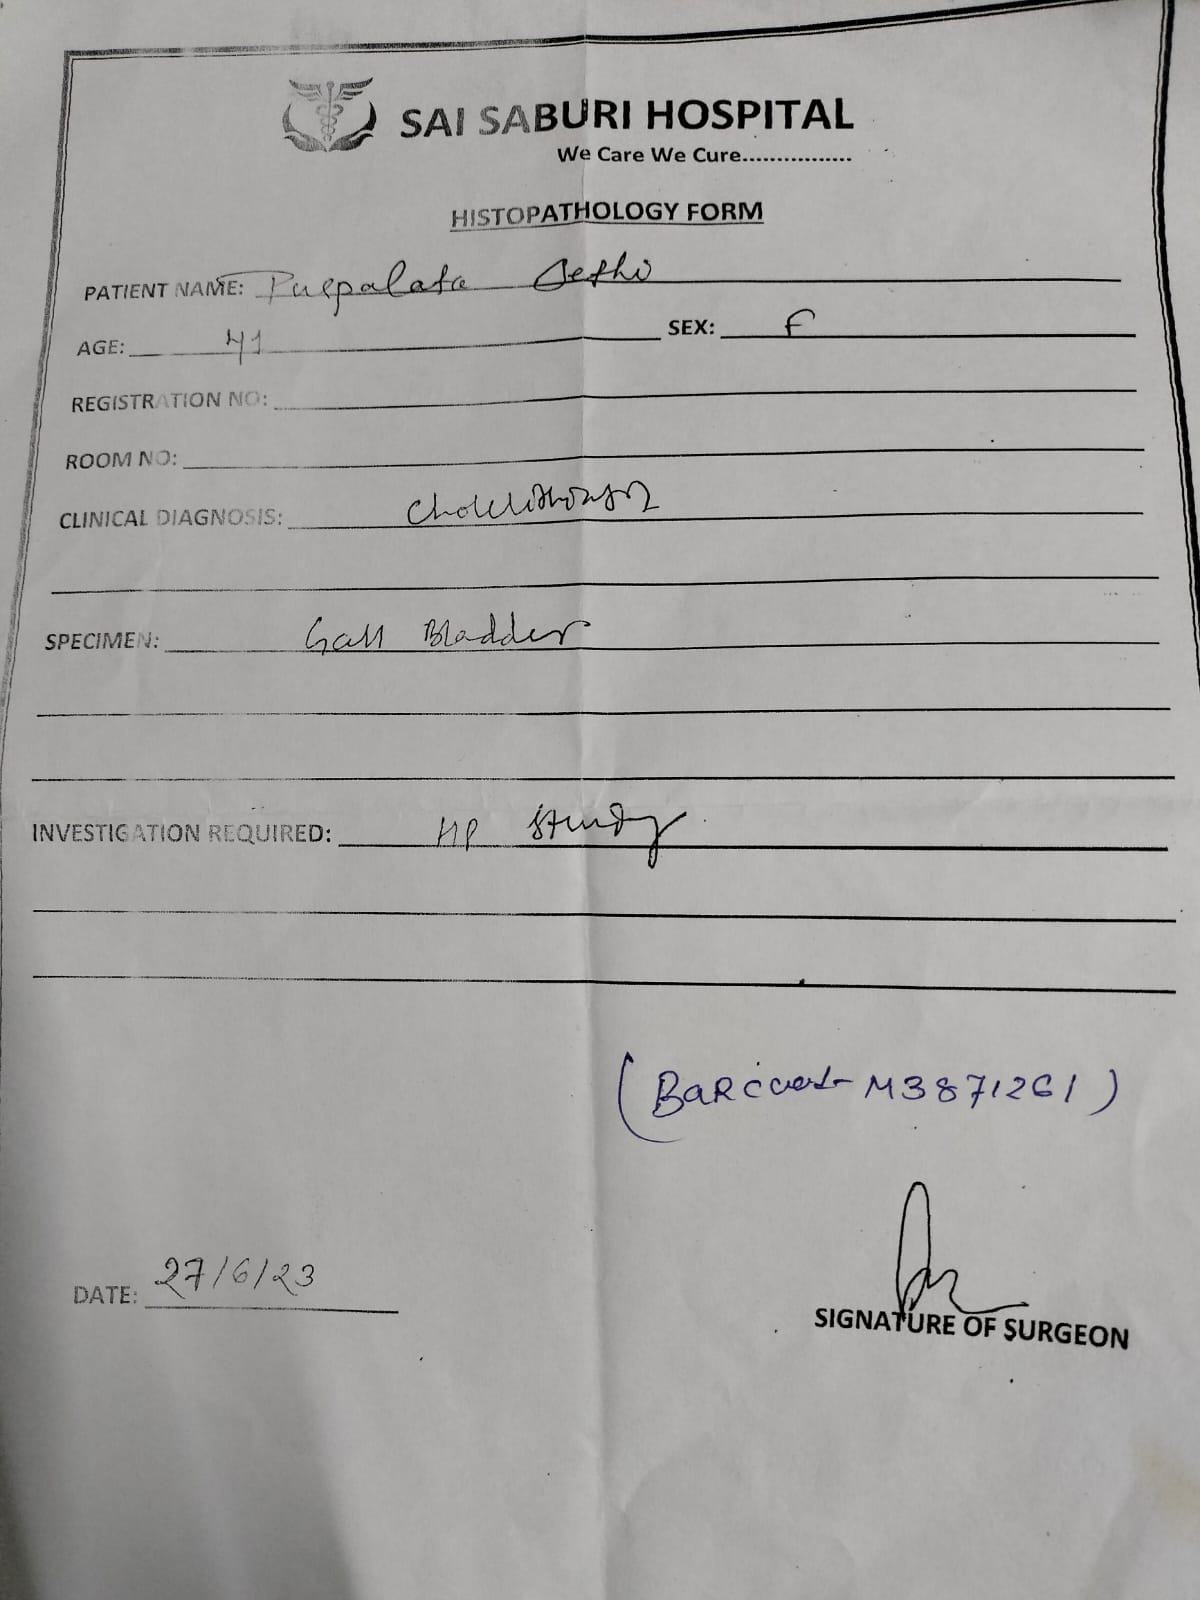 SAI SABURI HOSPITAL
We Care We Cure................
HISTOPATHOLOGY FORM
PATIENT NAME: Puspalata Sethi
AGE: 41 SEX: F
REGISTRATION NO:
ROOM NO:
CLINICAL DIAGNOSIS:
SPECIMEN: Gall Bladder
INVESTIGATION REQUIRED: HP study
(BaRcod- M3871261)
DATE: 27/6/23
SIGNATURE OF SURGEON